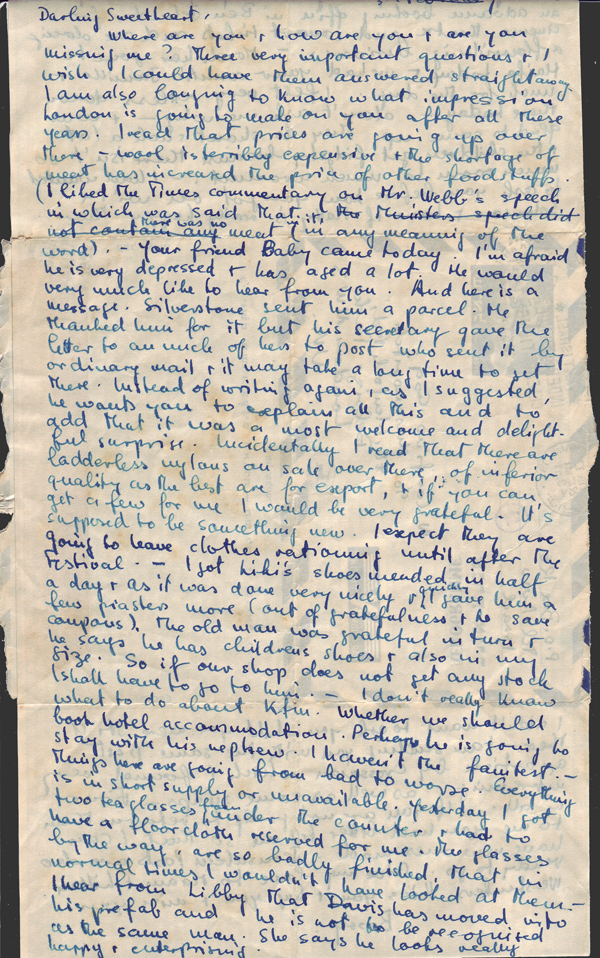 Darling Sweetheart,
Where are you + how are you + are you
missing me? Three very important questions + I
wish I could have them answered straightaway.
I am also longing to know what impression
London is going to make on you after all these
years. I read that prices are going up over
there - wool is terribly expensive + the shortage of
meat has increased the price of other foodstuffs.
(I liked the Times commentary on Mr. Webb's speech
in which was said that in it, the Ministers speech did
not contain any there was no meat in any meaning of the
word). - Your friend Baby came today. I'm afraid
he is very depressed + has aged a lot. He would
very much like to hear from you. And here is a
message. Silverstone sent him a parcel. He
thanked him for it but his secretary gave the
letter to an uncle of hers to post who sent it by
ordinary mail + it may take a long time to get
there. Instead of writing again, as I suggested,
he wants you to explain all this and to
add that it was a most welcome and delight-
ful surprise. Incidentally I read that there are
ladderless nylons on sale over there, of inferior
quality as the best are for export, + if you can
get a few for me I would be very grateful. It's
supposed to be something new. I expect they are
going to leave clothes rationing until after the
Festival. - I got Kiki's shoes mended in half
a day + as it was done very nicely + I gave him a
few piasters more (out of gratefulness + to save
coupons). The old man was grateful in turn +
he says he has childrens shoes + also in my
size. So if our shop does not get any stock
I shall have to go to him. - I don't really know
what to do about Kfir. Whether we should
book hotel accommodation. Perhaps he is going to
stay with his nephew. I haven't the faintest. -
Things here are going from bad to worse. Everything
is in short supply or unavailable. Yesterday I got
two teaglasses from under the counter + had to
have a floorcloth reserved for me. The glasses
by the way, are so badly finished, that in
normal times I wouldn't have looked at them. -
I hear from Libby that Davis has moved into
his prefab and he is not to be recognised
as the same man. She says he looks really
happy + enterprising.